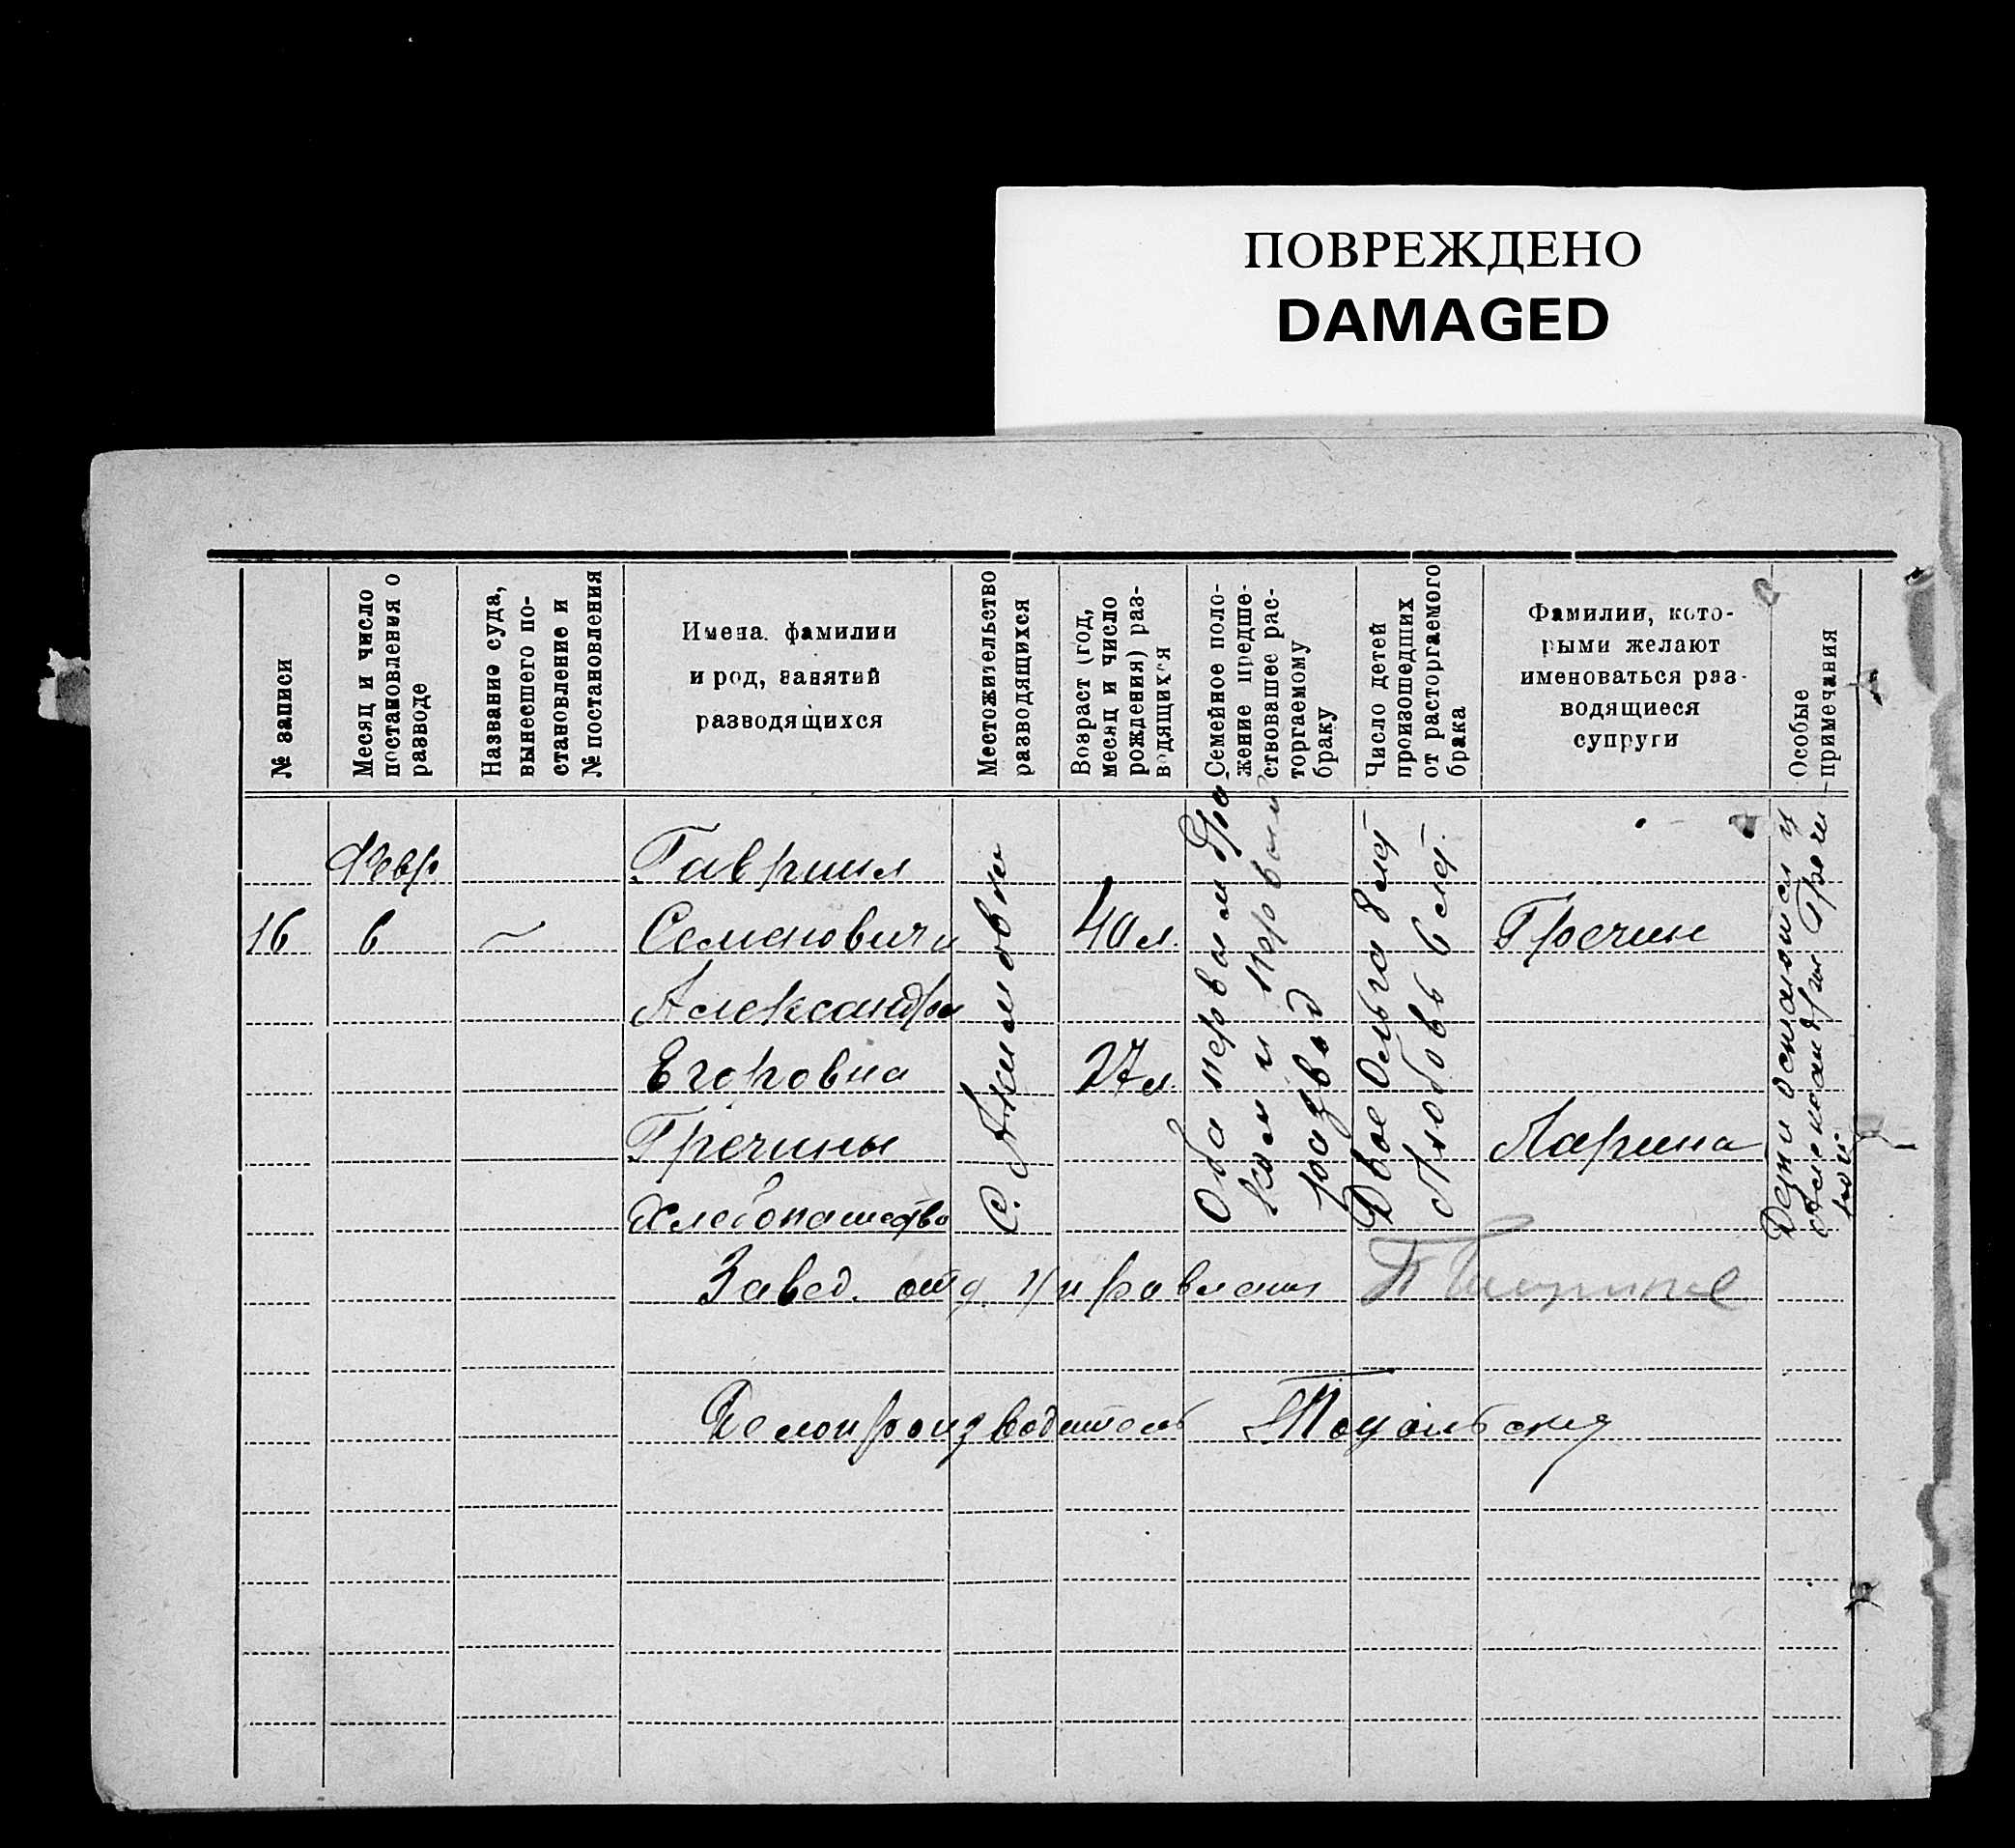 ПОВРЕЖДЕНО
DAMAGED
№ записи
Месяц и число
постановления о
разводе
Название суда,
вынесшего по-
становление и
№ постановления
Имена, фамилии
и род, занятий
разводящихся
Местожительство
разводящихся
Возраст (год,
месяц и число
рождения) раз-
водящихся
Семейное поло-
жение предше-
ствовавшее рас-
торгаемому
браку
Число детей
произошедших
от расторгаемого
брака
Фамилии, кото-
рыми желают
именоваться раз-
водящиеся
супруги
Особые
примечания
16
Февр
6
~
Гавриил
Семенович и
Александра
Егоровна
Гречины
Хлебопашество
С.
40 л.
27 л.
Оба первым бра
ком и первый
развод
Двое Ольга 8 лет
Любовь 6 лет.
Гречин
Ларина
Дети остались у
Александры Гречи
ной
Завед. отд. управления
Делопроизводитель